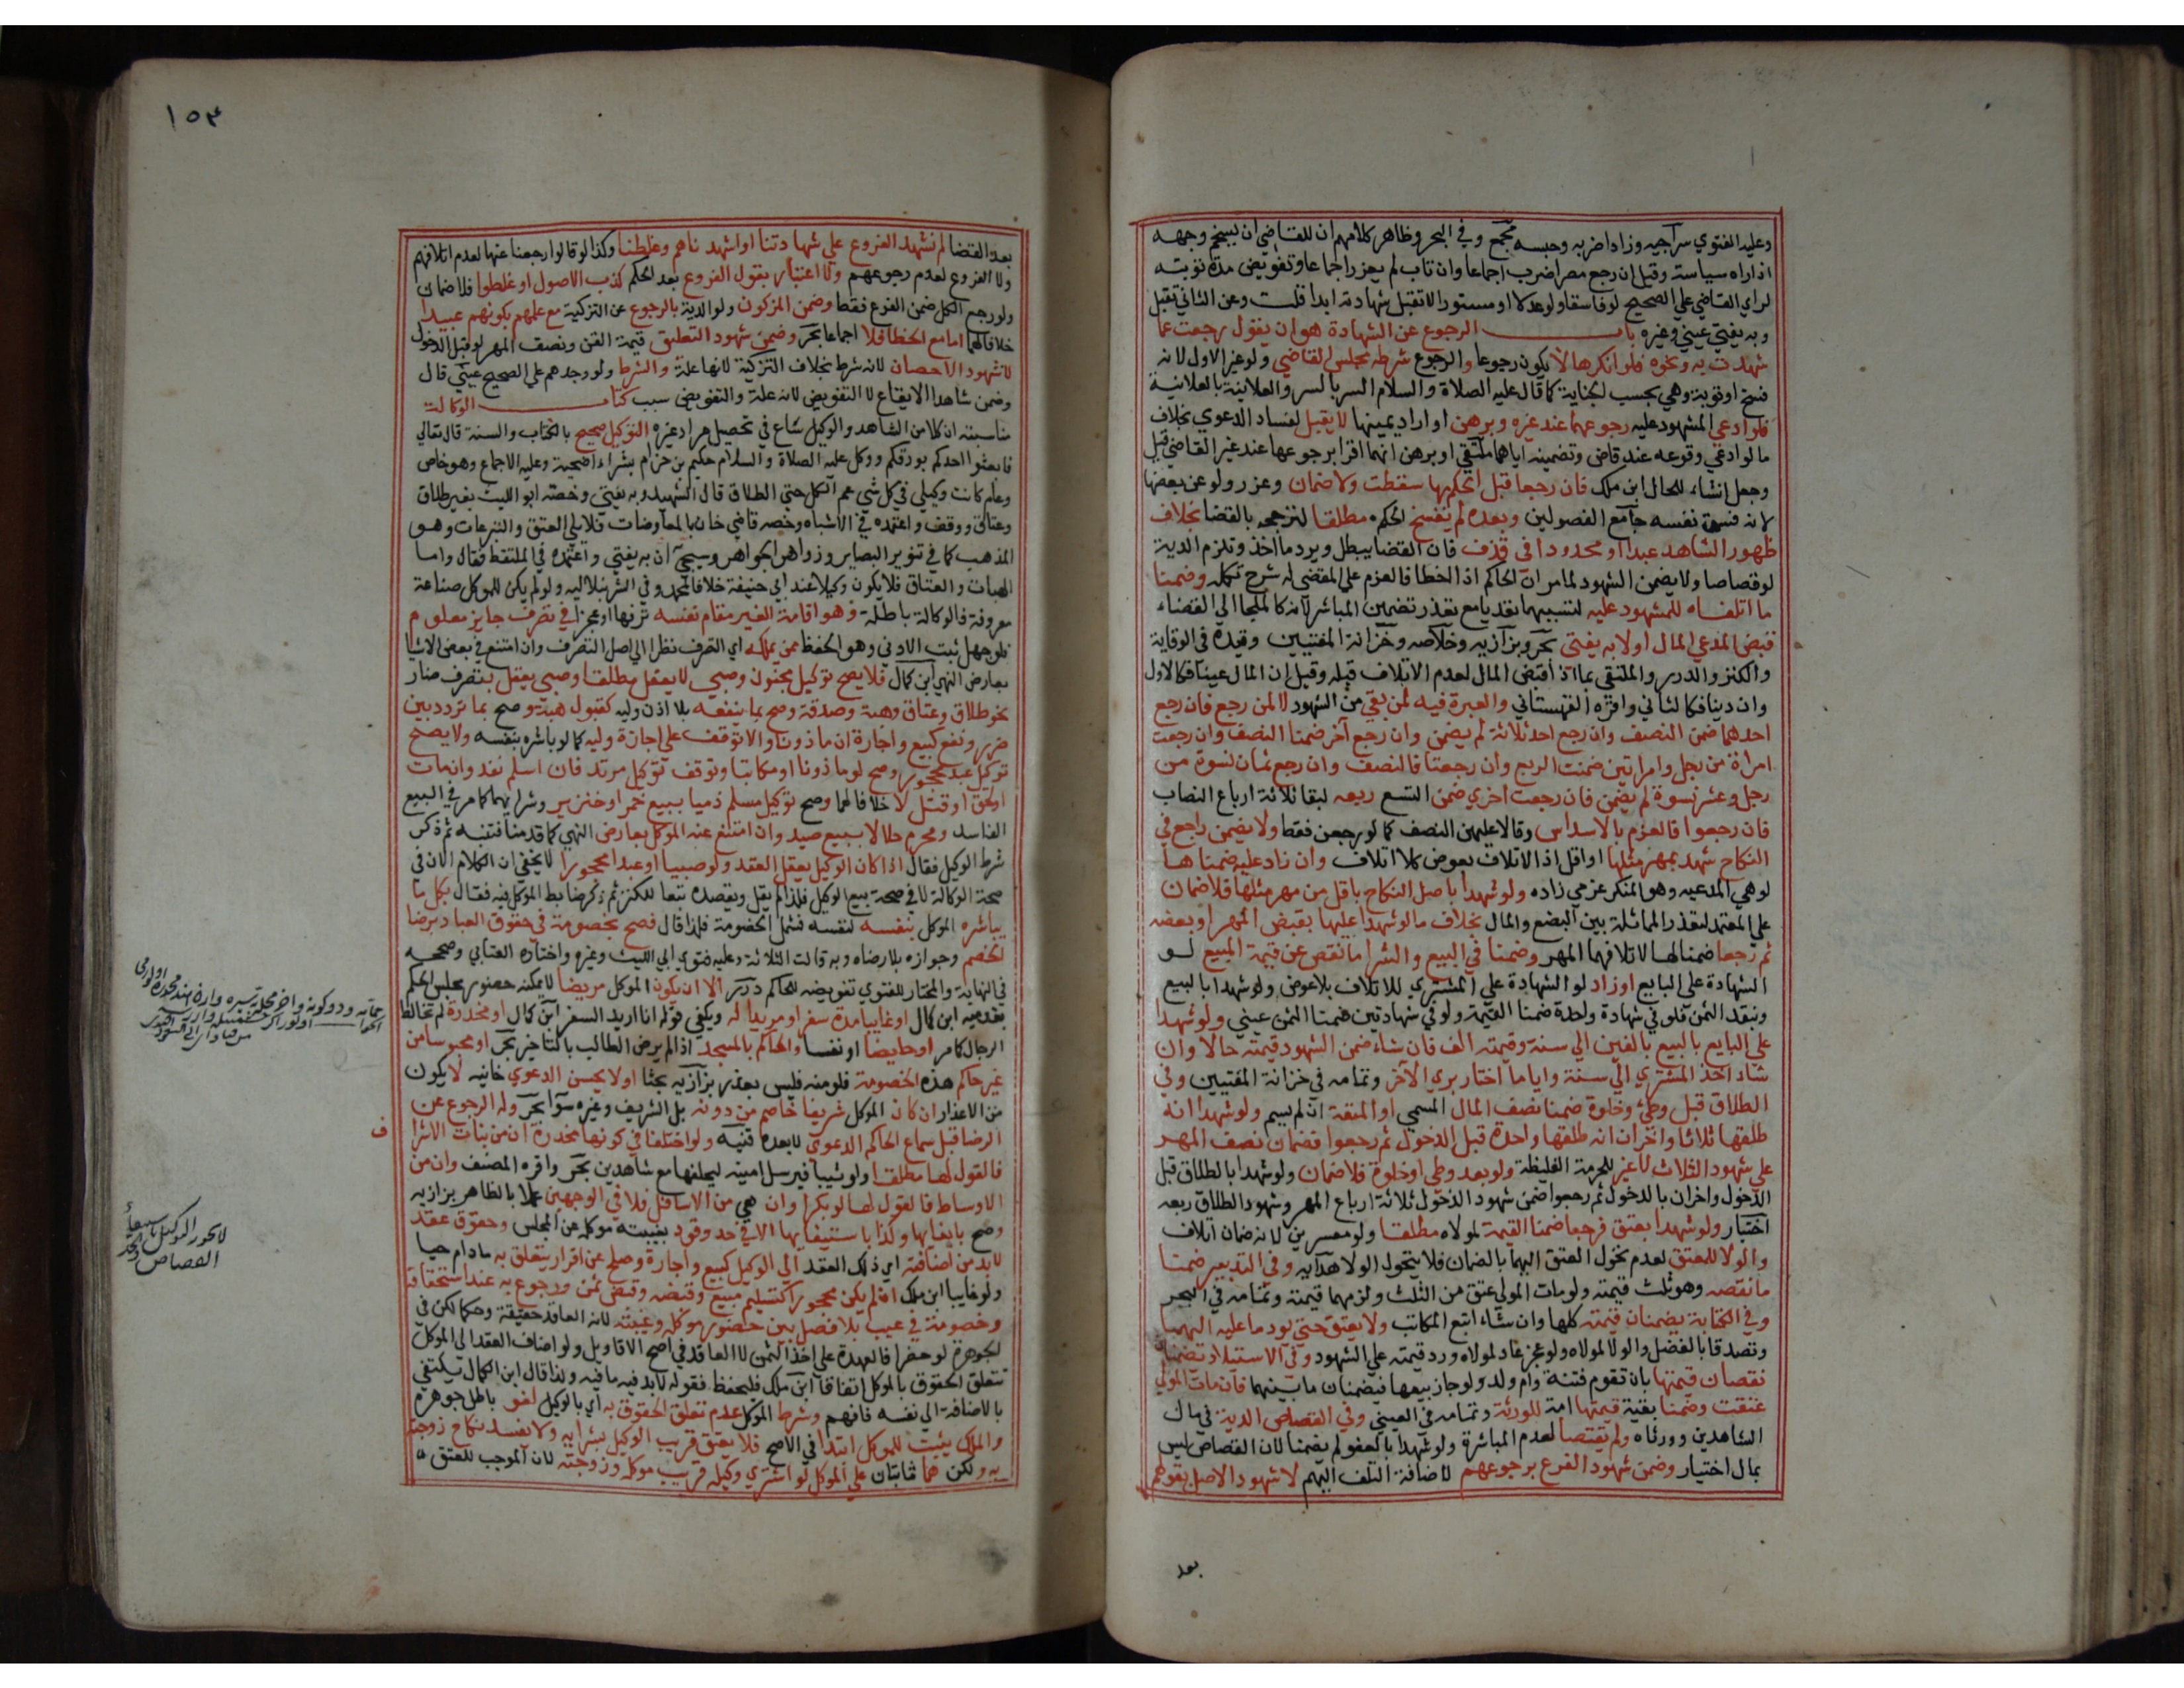 وعليه الفتوي سراجيه وزاد ضربه وحبسه مجمع وفي البحر وظاهر كلامهم ان للقاضي ان يسخم وجهه
اذا راه سياسة وقيل ان رجع مصرا ضرب اجماعا وان تاب لم يعزر اجماعا وتفويض مدة توبته
لراي القاضي علي الصحيح لو فاسقا ولو عدلا او مستورا لا تقبل شهادته ابدا قلت وعن الثاني تقبل
وبه يفتي عيني وغيره باب الرجوع عن الشهادة هو ان يقول رجعت عما
شهدت به ونحوه فلو انكرها لا يكون رجوعا والرجوع شرطه مجلس القاضي ولو غير الاول لانه
فسخ او توبة وهي بحسب الجناية كما قال عليه الصلاة والسلام السر بالسر والعلانية بالعلانية
فلو ادعي المشهود عليه رجوعهما عند غيره وبرهن او اراد يمينهما لا يقبل لفساد الدعوي بخلاف
ما لو ادعي وقوعه عند قاضي وتضمينه اياهما ملتقي او برهن انهما اقرا برجوعهما عند غير القاضي قبل
وجعل انشاء للحال ابن ملك فان رجعا قبل الحكم بها سقطت ولا ضمان وعزر ولو عن بعضها
لانه فسق نفسه جامع الفصولين وبعده لم يفسخ الحكم مطلقا لترجحه بالقضا بخلاف
ظهور الشاهد عبدا او محدودا في قذف فان القضا يبطل ويرد ما اخذ وتلزم الدية
لو قصاصا ولا يضمن الشهود لما مر ان الحاكم اذا اخطا فالغرم علي المقضي له شرح تكمله وضمنا
ما اتلفاه للمشهود عليه لتسببهما تعديا مع تعذر تضمين المباشر لانه كالملجا الي القضاء
قبض المدعي المال اولا به يفتي بحر وبزازيه وخلاصه وخزانة المفتيين وقيده في الوقاية
والكنز والدرر والملتقي بما اذا قبض المال لعدم الاتلاف قبله وقيل ان المال عينا فكالاول
وان دينا فكالثاني واقره القهستاني والعبرة فيه لمن بقي من الشهود لا لمن رجع فان رجع
احدهما ضمن النصف وان رجع احد ثلاثة لم يضمن وان رجع آخر ضمنا النصف وان رجعت
امراة من رجل وامراتين ضمنت الربع وان رجعتا فالنصف وان رجع ثمان نسوة من
رجل وعشر نسوة لم يضمن فان رجعت اخري ضمن التسع ربعه لبقا ثلاثة ارباع النصاب
فان رجعوا فالغرم بالاسداس وقالا عليهن النصف كما لو رجعن فقط ولا يضمن راجع في
النكاح شهد بمهر مثلها او اقل اذ الاتلاف بعوض كلا اتلاف وان زاد عليه ضمناها
لو هي المدعيه وهو المنكر عزمي زاده ولو شهدا باصل النكاح باقل من مهر مثلها فلا ضمان
علي المعتمد لتعذر المماثلة بين البضع والمال بخلاف ما لو شهدا عليها بقبض المهر او بعضه
ثم رجعا ضمنا لها لاتلافهما المهر وضمنا في البيع والشرا ما نقص عن قيمة المبيع لو
الشهادة علي البايع او زاد لو الشهادة علي المشتري للاتلاف بلا عوض ولو شهدا بالبيع
وبنقد الثمن فلو في شهادة واحدة ضمنا القيمة ولو في شهادتين ضمنا الثمن عيني ولو شهدا
علي البايع بالبيع بالفين الي سنة وقيمته الف فان شاء ضمن الشهود قيمته حالا وان
شاء اخذ المشتري الي سنة وايا ما اختار بري الآخر وتمامه في خزانة المفتيين وفي
الطلاق قبل وطئ وخلوة ضمنا نصف المال المسمي او المتعة ان لم يسم ولو شهدا انه
طلقها ثلاثا واخران انه طلقها واحدة قبل الدخول ثم رجعوا فضمان نصف المهر
علي شهود الثلاث لا غير للحرمة الغليظة ولو بعد وطئ او خلوة فلا ضمان ولو شهدا بالطلاق قبل
الدخول واخران بالدخول ثم رجعوا ضمن شهود الدخول ثلاثة ارباع المهر وشهود الطلاق ربعه
اختيار ولو شهدا بعتق فرجعا ضمنا القيمة لمولاه مطلقا ولو معسرين لانه ضمان اتلاف
والولا للمعتق لعدم تحول العتق اليهما بالضمان فلا يتحول الولا هدايه وفي التدبير ضمنا
ما نقصه وهو ثلث قيمته ولو مات المولي عتق من الثلث ولزمهما قيمته وتمامه في البحر
وفي الكتابة يضمنان قيمته كلها وان شاء اتبع المكاتب ولا يعتق حتي يودي ما عليه اليهما
وتصدقا بالفضل والولا لمولاه ولو عجز عاد لمولاه ورد قيمته علي الشهود وفي الاستيلاد يضمنان
نقصان قيمتها بان تقوم قنة وام ولد ولو جاز بيعها فيضمنان ما بينهما فان مات المولي
عتقت وضمنا بقية قيمتها امة للورثة وتمامه في العيني وفي القصاص الدية في مال
الشاهدين وورثاه ولم يقتصا لعدم المباشرة ولو شهدا بالعفو لم يضمنا لان القصاص ليس
بمال اختيار وضمن شهود الفرع برجوعهم لاضافة التلف اليهم لا شهود الاصل بقولهم
بعد
١٥٣
بعد القضا لم نشهد الفروع علي شهادتنا او اشهدناهم وغلطنا وكذا لو قالوا رجعنا عنها لعدم اتلافهم
ولا الفروع لعدم رجوعهم ولا اعتبار بقول الفروع بعد الحكم كذب الاصول او غلطوا فلا ضمان
ولو رجع الكل ضمن الفرع فقط وضمن المزكون ولو الدية بالرجوع عن التزكية مع علمهم بكونهم عبيدا
خلافا لهما اما مع الخطا فلا اجماعا بحر وضمن شهود التعليق قيمة القن ونصف المهر لو قبل الدخول
لا شهود الاحصان لانه شرط بخلاف التزكية لانها علة والشرط ولو وحدهم علي الصحيح عيني قال
وضمن شاهدا الايقاع لا التفويض لانه علة والتفويض سبب كتاب الوكالة
مناسبته ان كلا من الشاهد والوكيل ساع في تحصيل مراد غيره التوكيل صحيح بالكتاب والسنة قال تعالي
فابعثوا احدكم بورقكم ووكل عليه الصلاة والسلام حكيم بن حزام بشراء اضحية وعليه الاجماع وهو خاص
وعام كانت وكيلي في كل شي عم الكل حتي الطلاق قال الشهيد وبه يفتي وخصه ابو الليث بغير طلاق
وعتاق ووقف واعتمده في الاشباه وخصه قاضي خان بالمعاوضات فلا يلي العتق والتبرعات وهو
المذهب كما في تنوير البصاير وزواهر الجواهر وسيجي ان به يفتي واعتمده في الملتقط فقال واما
الهبات والعتاق فلا يكون وكيلا عند ابي حنيفة خلافا لمحمد وفي الشرنبلاليه ولو لم يكن للموكل صناعة
معروفة فالوكالة باطلة وهو اقامة الغير مقام نفسه ترفها او عجزا في تصرف جايز معلوم
فلو جهل ثبت الادني وهو الحفظ ممن يملكه اي التصرف نظرا الي اصل التصرف وان امتنع في بعض الاشيا
بعارض النهي ابن كمال فلا يصح توكيل مجنون وصبي لا يعقل مطلقا وصبي يعقل بتصرف ضار
نحو طلاق وعتاق وهبة وصدقة وصح بما ينفعه بلا اذن وليه كقبول هبة وصح بما تردد بين
ضرر ونفع كبيع واجارة ان ماذونا والا توقف علي اجازة وليه كما لو باشره بنفسه ولا يصح
توكيل عبد محجور وصح لو ماذونا او مكاتبا وتوقف توكيل مرتد فان اسلم نفذ وان مات
او لحق او قتل لا خلافا لهما وصح توكيل مسلم ذميا ببيع خمر او خنزير وشرايهما كما مر في البيع
الفاسد ومحرم حلالا ببيع صيد وان امتنع عنه الموكل بعارض النهي كما قدمنا فتنبه ثم ذكر
شرط الوكيل فقال اذا كان الوكيل يعقل العقد ولو صبيا او عبدا محجورا لا يخفي ان الكلام الان في
صحة الوكالة لا في صحة بيع الوكيل فلذا لم يقل ويقصده تبعا للكنز ثم ذكر ضابط الموكل فيه فقال بكل ما
يباشره الموكل بنفسه لنفسه فشمل الخصومة فلذا قال فصح بخصومة في حقوق العباد برضا
الخصم وجوازه بلا رضاه وبه قالت الثلاثة وعليه فتوي ابي الليث وغيره واختاره العتابي وصححه
في النهاية والمختار للفتوي تفويضه للحاكم درر الا ان يكون الموكل مريضا لا يمكنه حضور مجلس الحكم
بقدميه ابن كمال او غايبا مدة سفر او مريدا له ويكفي قوله انا اريد السفر ابن كمال او مخدرة لم تخالط
الرجال كما مر او حايضا او نفسا والحاكم بالمسجد اذا لم يرض الطالب بالتاخير بحر او محبوسا من
غير حاكم هذه الخصومة فلو منه فليس بعذر بزازيه بحثا او لا يحسن الدعوي خانيه لا يكون
من الاعذار ان كان الموكل شريفا خاصم من دونه بل الشريف وغيره سوا بحر وله الرجوع عن
الرضا قبل سماع الحاكم الدعوي لا بعده قنيه ولو اختلفا في كونها مخدرة ان من بنات الاشراف
فالقول لها مطلقا ولو ثيبا فيرسل امينه ليحلفها مع شاهدين بحر واقره المصنف وان من
الاوساط فالقول لها لو بكرا وان هي من الاسافل فلا في الوجهين عملا بالظاهر بزازيه
وصح بايفايها وكذا باستيفايها الا في حد وقود بغيبة موكله عن المجلس وحقوق عقد
لا بد من اضافته اي ذلك العقد الي الوكيل كبيع واجارة وصلح عن اقرار يتعلق به ما دام حيا
ولو غايبا ابن ملك ان لم يكن محجورا كتسليم مبيع وقبضه وقبض ثمن ورجوع به عند استحقاقه
وخصومة في عيب بلا فصل بين حضور موكله وغيبته لانه العاقد حقيقة وحكما لكن في
الجوهرة لو حضرا فالعهدة علي اخذ الثمن لا العاقد في اصح الاقاويل ولو اضاف العقد الي الموكل
تتعلق الحقوق بالموكل اتفاقا ابن ملك فليحفظ فقوله لا بد فيه ما فيه ولذا قال ابن الكمال يكتفي
بالاضافة الي نفسه فافهم وشرط الموكل عدم تعلق الحقوق به اي بالوكيل لغو باطل جوهرة
والملك يثبت للموكل ابتدا في الاصح فلا يعتق قريب الوكيل بشرايه ولا يفسد نكاح زوجته
به ولكن هما ثابتان علي الموكل لو اشتري وكيله قريب موكله وزوجته لان الموجب للعتق
ف
لا يجوز التوكيل باستيفاء
القصاص والحد